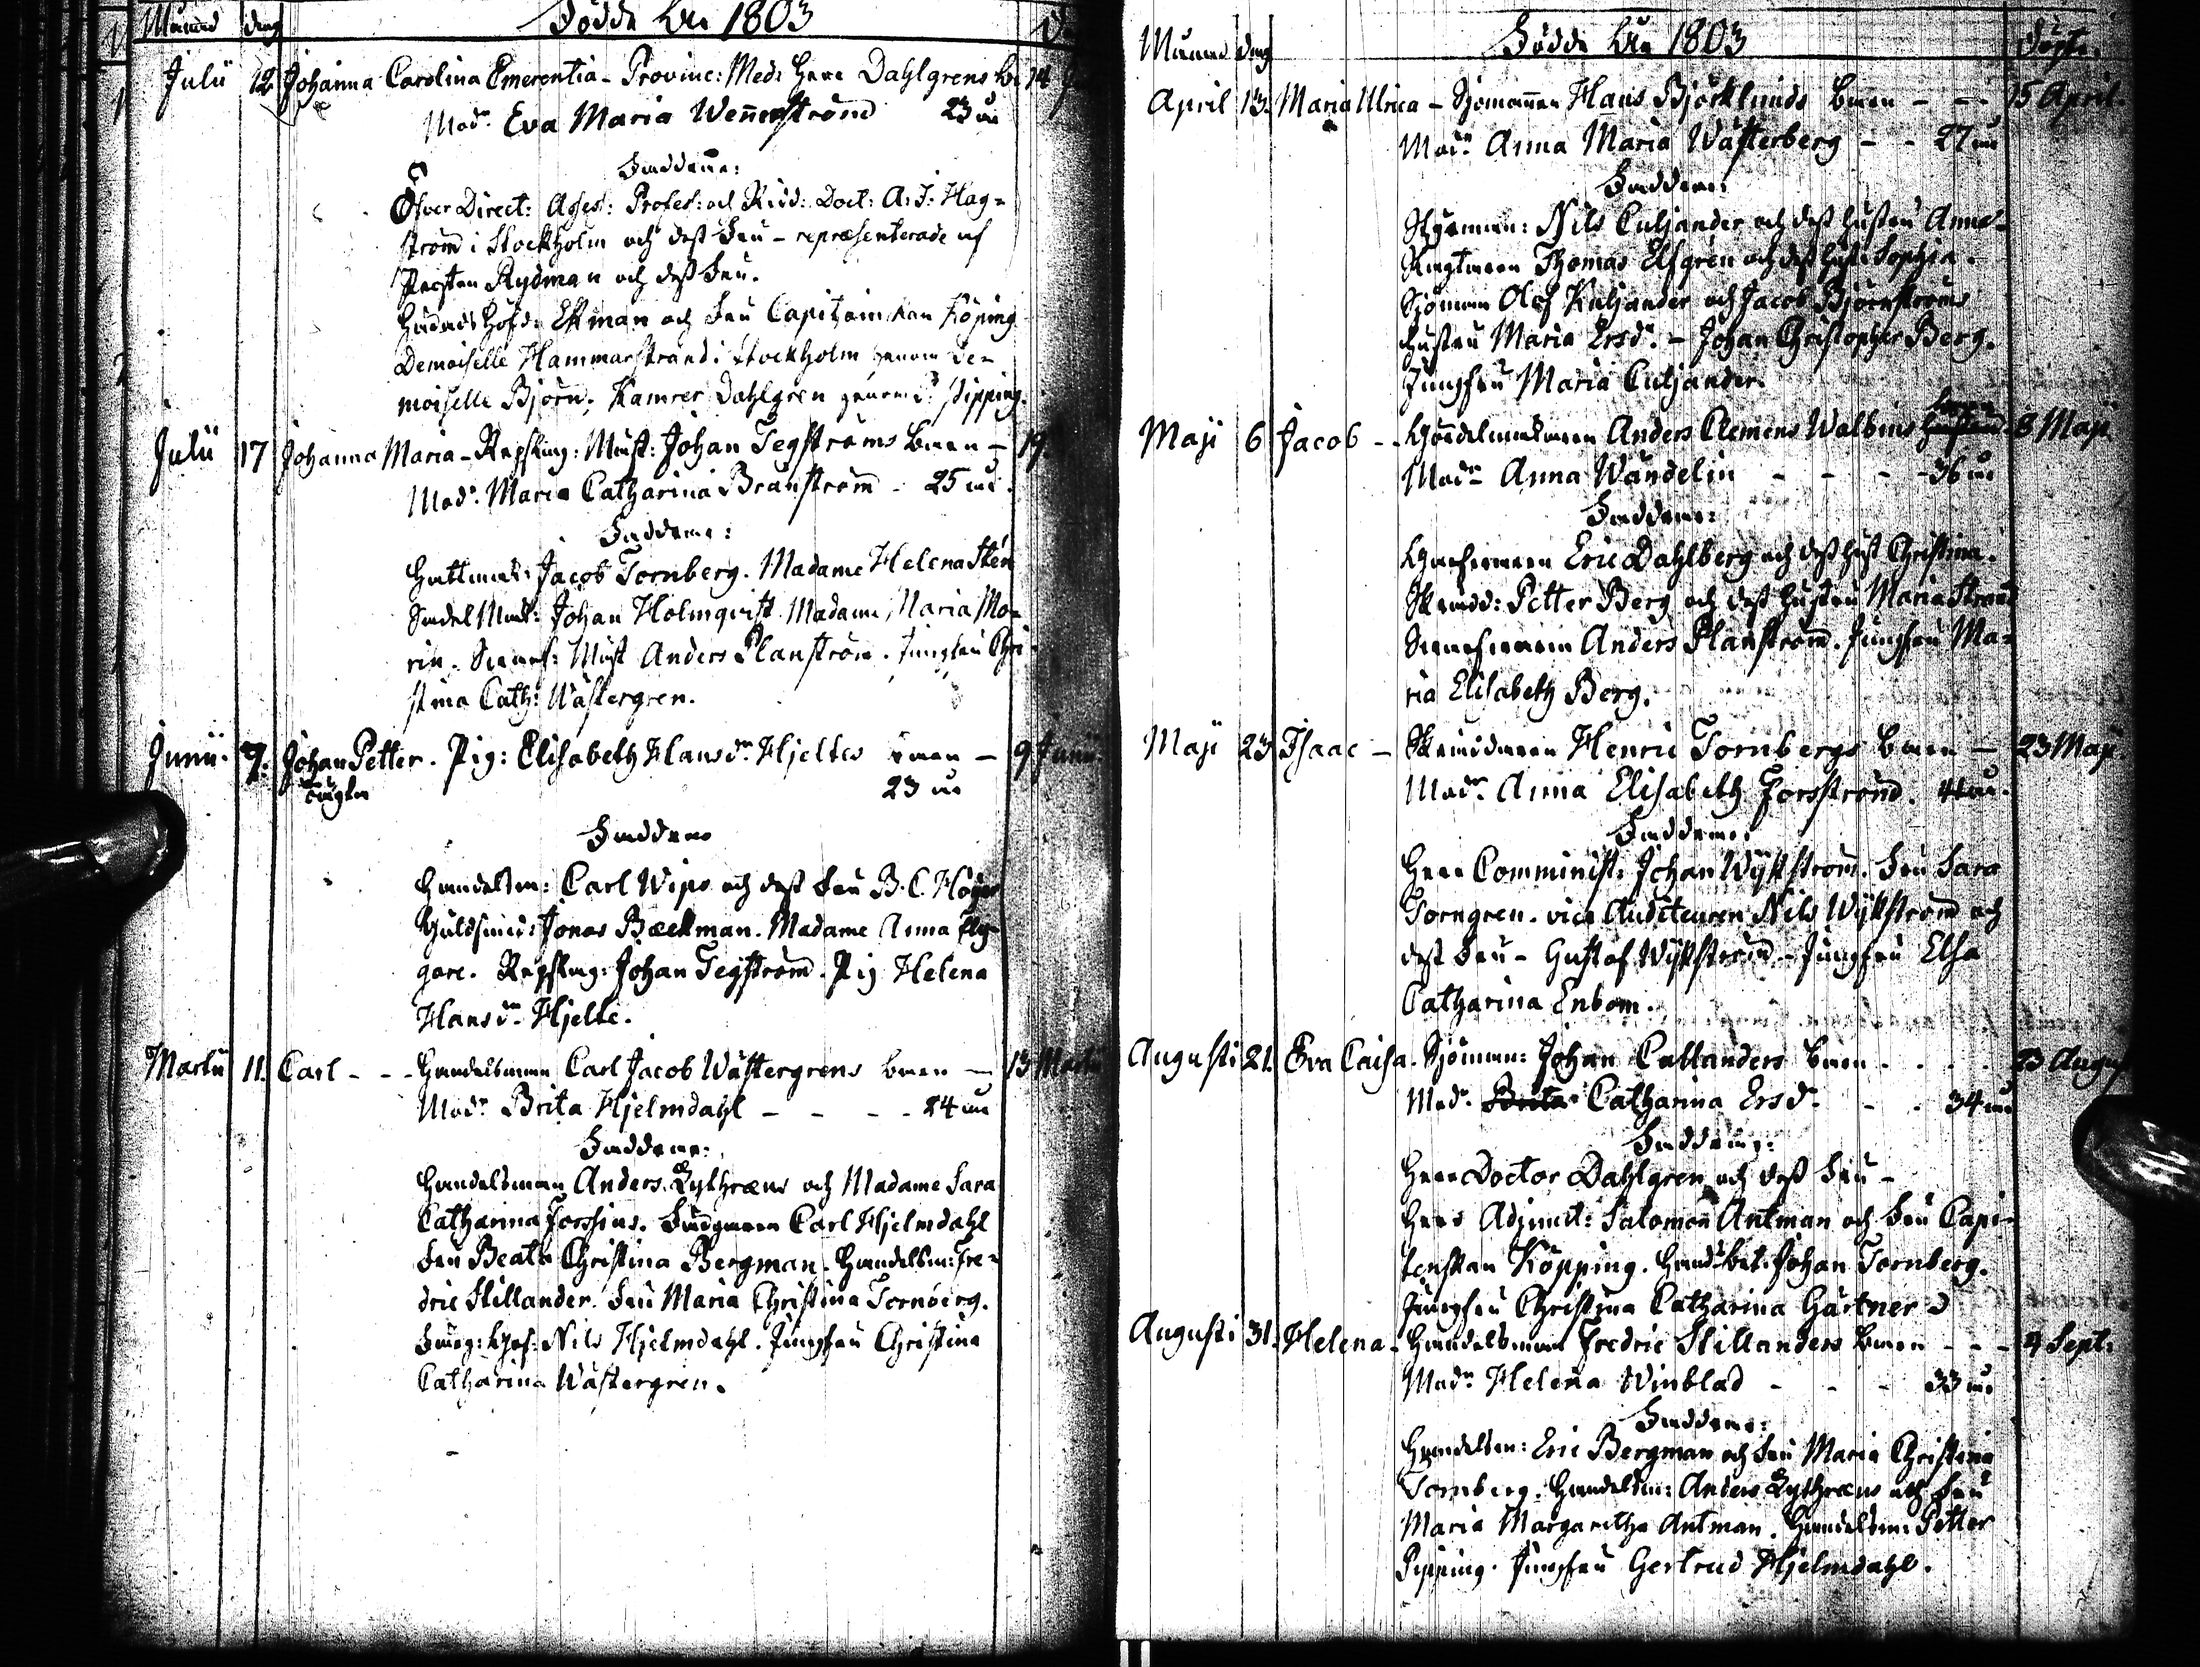 Månad dag Födde åhr 1803
Julii 12 Johanna Carolina Emerentia - Provinc: Med: Herr Dahlgrens 14
Mod:r Eva Maria Wennerström 23 åhr
Faddrarne:
Öfver Direct: Asses: Profes: och Ridd: Doct: A: J: Hag-
ström i Stockholm och dess Fru - repræsenterade af
Rydman och dess Fru.
Häradshöfd: Ekman och Fru Capitainskan Köping
Demoiselle Hammarstrand i Stockholm genom De-
moiselle Björn. Kamrer Dahlgren genom Pipping.
Julii 17 Johanna Maria - Repslag: Mäst: Johan Tegströms Barn - 19
Mod:r Maria Catharina Branström - 25 åhr.
Faddrarne:
Hattmak: Jacob Tornberg. Madame Helena Stén
Sadel Mak: Johan Holmqvist Madame Maria Mo-
rin. Mäst Anders Planström. Jungfru Chri-
stina Cath: Wästergren.
Junii 7. Johan Petter. Pig: Elisabeth Hansd:r Hjeltes Barn - 9 Junii
23 åhr
Faddrarne
Handelsm: Carl Wips och dess Fru B. C. Höijer
Guldsmed: Jonas Bæckman. Madame Anna Fly-
gare. Repslag: Johan Tegström. Pig Helena
Hansd:r Hjelte.
Martii 11. Carl - - - Handelsman Carl Jacob Wästergrens Barn - 13 Martii
Mod:r Brita Hjelmdahl - - - - 24 åhr
Faddrarne:
Handelsman Anders Lythræus och Madame Sara
Catharina Forssius. Carl Hjelmdahl
Fru Beata Christina Bergman. Handelsm: Fre-
dric Stillander. Fru Maria Christina Tornberg.
Nils Hjelmdahl. Jungfru Christina
Catharina Wästergren.
Månad dag Födde åhr 1803 Döpte.
April 13. Maria Ulrica - Sjömannen Hans Björklunds Barn - - - 15 April.
Mod:r Anna Maria Wästerberg - - 27 åhr
Faddrarne:
Styrman: Nils Culjander och dess hustru Anna -
Thomas Elfgrén och dess hust: Sophia.
Sjöman Olof Kuljander och Jacob Björnströms
hustru Maria Ersd:r - Johan Christopher Berg.
Jungfru Maria Culjander.
Maji 6 Jacob - - Anders Clemens Walbins 8 Maji
Mod:r Anna Wandelin - - - - 36 åhr
Faddrarne:
Eric Dahlberg och dess hust Christina.
Skrädd: Petter Berg och dess hustru Maria Ström
Anders Planström. Jungfru Ma-
ria Elisabeth Berg.
Maji 23 Isaac - Skräddaren Henric Tornbergs Barn - 23 Maji
Mod:r Anna Elisabeth Forsström. 44 åhr.
Faddrarne:
Herr Comminist: Johan Wykström. Fru Sara
Torngren. vice Auditeuren Nils Wykström och
dess Fru - Gustaf Wykström - Jungfru Elsa
Catharina Enbom.
Augusti 21. Eva Caisa. Sjöman: Johan Callanders Barn - - - - 23 Augus
Mod:r Brita Catharina Ersd:r - - 34 åhr
Faddrarne:
Herr Doctor Dahlgren och dess Fru -
Herr Adjunct: Salomon Antman och Fru Capi-
tenskan Köpping. Johan Tornberg.
Jungfru Christina Catharina Gärtner
Augusti 31. Helena - Handelsman Fredric Stillanders Barn - - - 4 Sept:
Mod:r Helena Winblad - - - 33 åhr
Faddrarne:
Handelsm: Eric Bergman och Fru Maria Christina
Tornberg. Handelsm: Anders Lythræus och Fru
Maria Margaretha Antman. Handelsm: Petter
Pipping. Jungfru Gertrud Hjelmdahl.